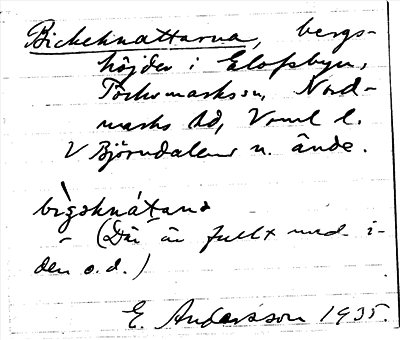 Bickeknattarna, bergs-
höjder i Elofsbyn,
Töcksmarks sn, Nord-
marks hd, Vrml l.
V Björndalens n. ände.
bìgeknátana
– (Där är fullt med i-
den o.d.)
E. Andersson 1935.